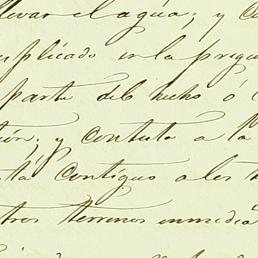 llevar el agua; y c
plicado en la pregu
parte del hecho ó
ión; y contesta a la
tá contiguo a los t
tros terrenos inmedia